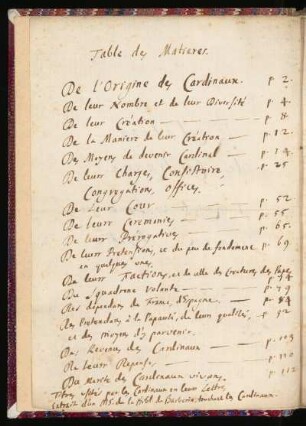 Table des Matieres.
De l'Origine des Cardinaux. p. 2.
De leur Nombre et de leur Diversité p. 4
De leur Création — p. 8
De la Maniere de leur Création — p. 12
Des Moyens de devenir Cardinal — p. 14
De leurs Charges, Consistoire p. 25
Congregations, offices.
De Leur Cour — p. 52
De leurs Ceremonies — p. 55
De leurs Prérogatives — p. 65.
De leurs Pretensions, et du peu de fondement p. 69
en quelques unes.
De leurs Factions, et de celle des Creatures des Papes
De l'Esquadron volante — p. 79
Des dépendans de France, d'Espagne — p.
Des Pretendans à la Papauté, de leurs qualités, p. 92
et des moyens d'y parvenir.
Des Revenus des Cardinaux — p. 103
De leurs — p. 110
Du Merite des Cardinaux vivans. p. 112
Titres usités par les Cardinaux en leurs Lettres.
Extrait d'un MS. de la Bibl. de Barberin, touchant les Cardinaux.